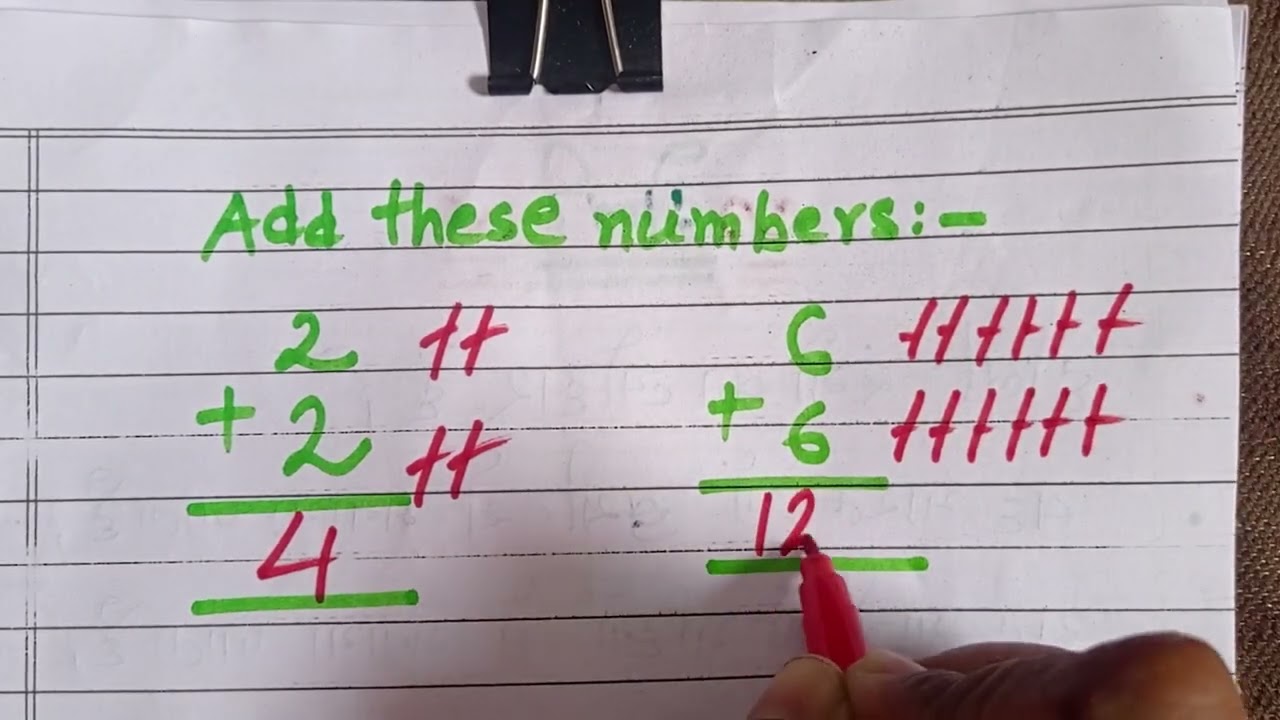 Add these numbers:-
2
+ 2
4
6
+ 6
12